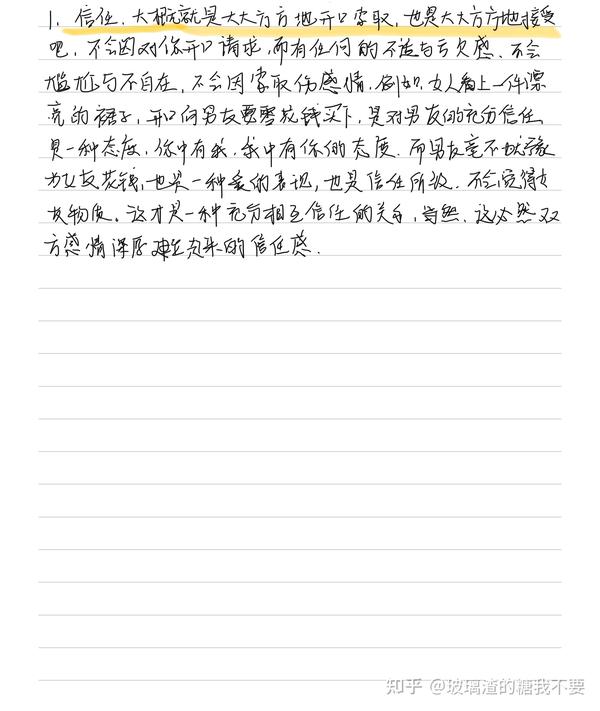 1. 信任.大概就是大大方方地开口索取,也是大大方方地接受
吧.不会因对你开口请求,而有任何的不适与亏欠感.不会
尴尬与不自在,不会因索取伤感情.例如,女人看上一件漂
亮的裙子,开口向男友要零花钱买下,是对男友的充分信任
是一种态度.你中有我,我中有你的态度.而男友毫不犹豫
为女友花钱,也是一种爱的表现,也是信任所致.不会觉得女
友物质.这才是一种充分相互信任的关系,当然,这必然双
方感情深厚建立起来的信任感.
知乎 @玻璃渣的糖我不要